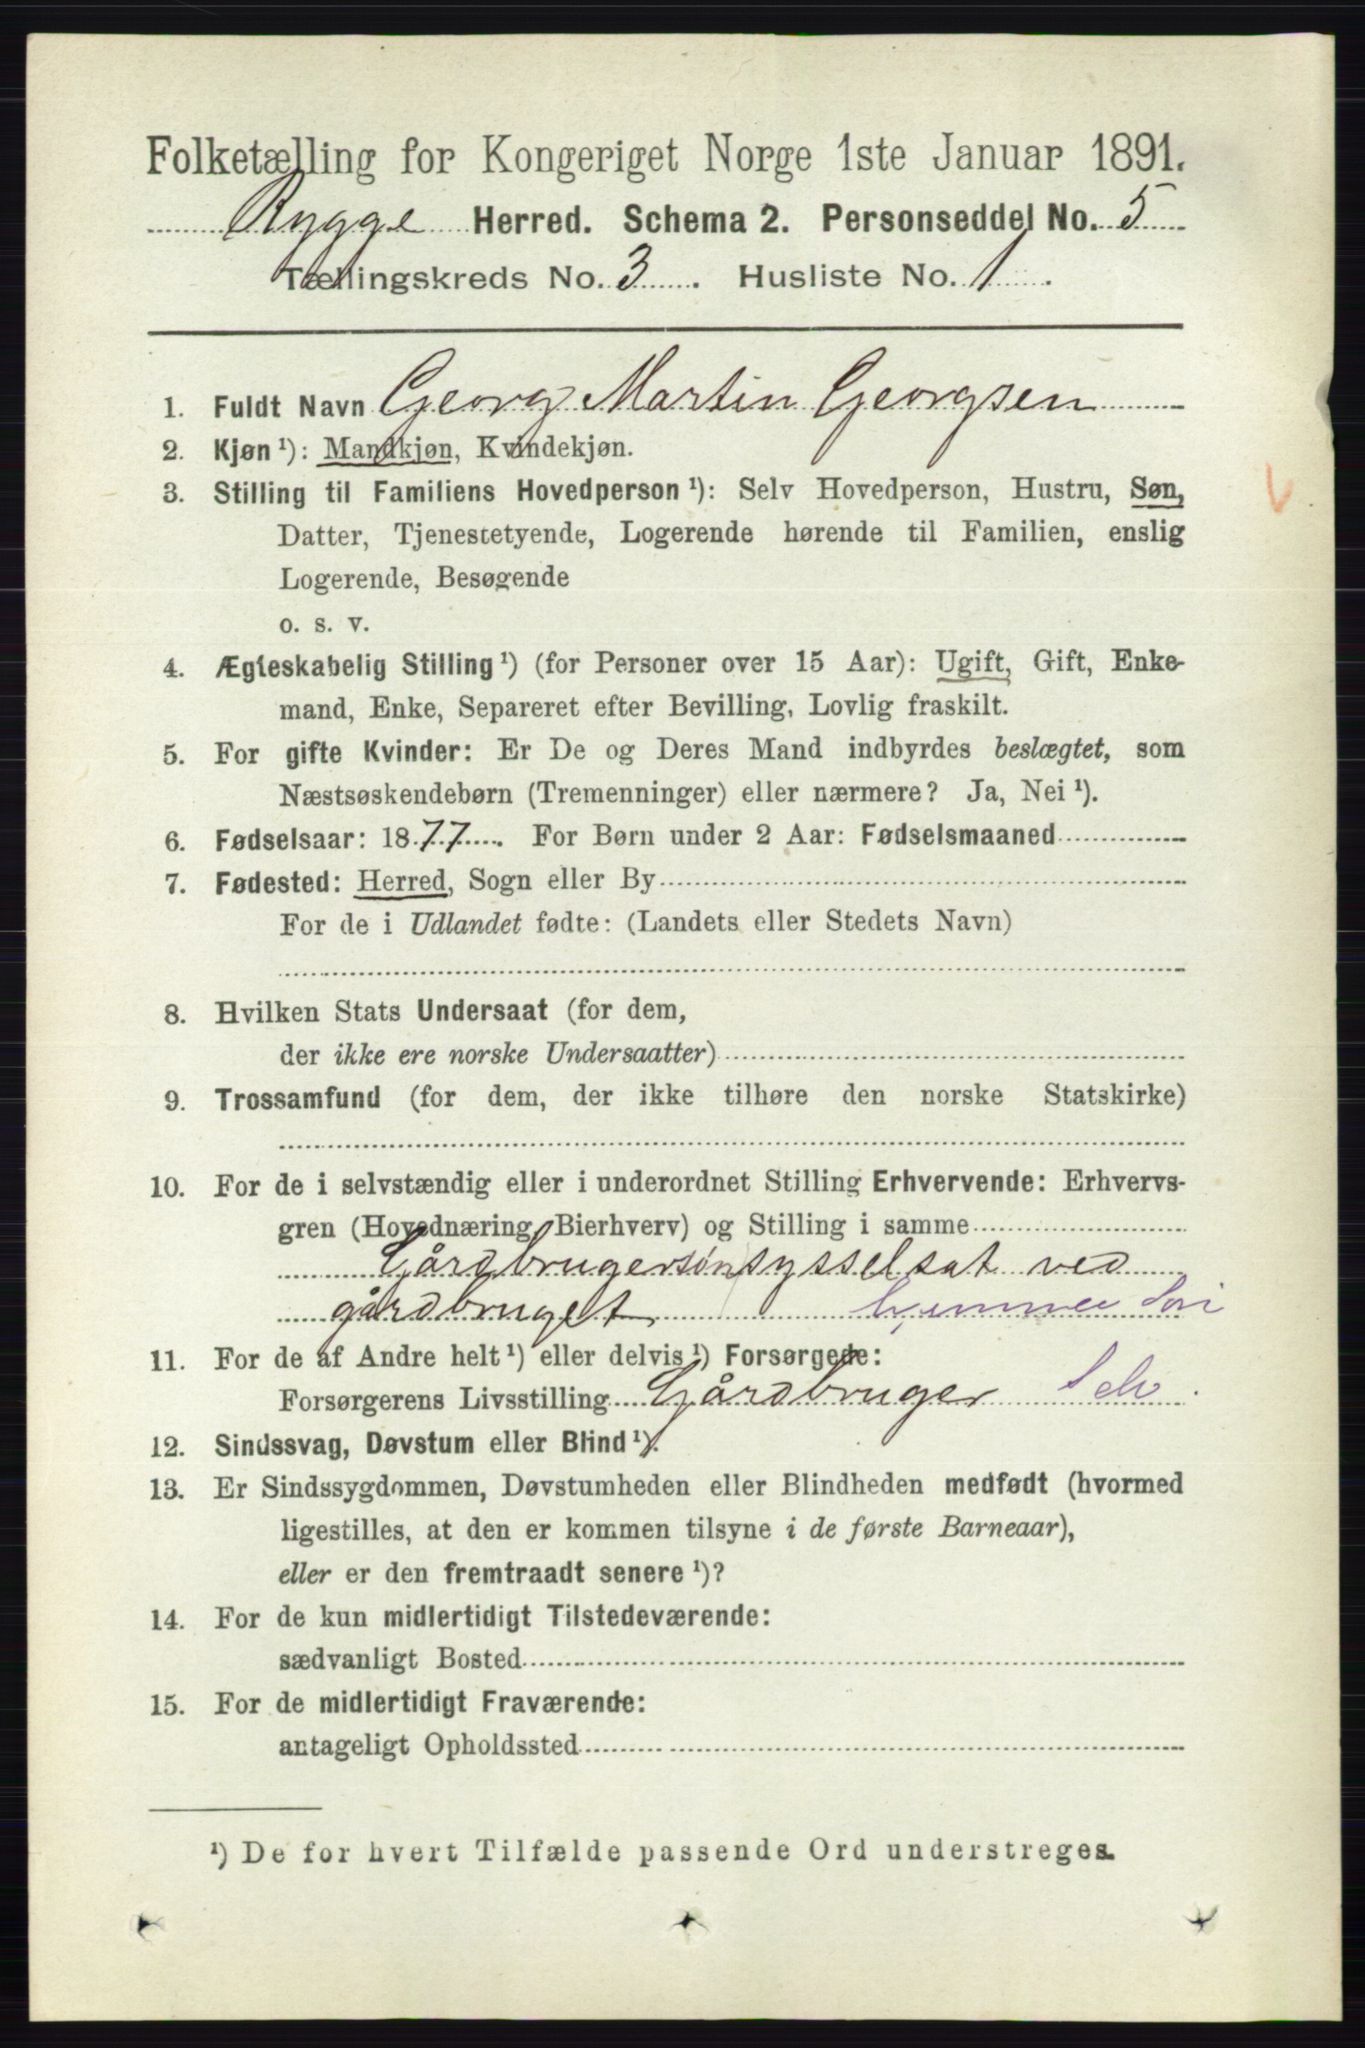 Folketælling for Kongeriget Norge 1ste Januar 1891.
Rygge Herred. Schema 2. Personseddel No. 5
Tællingskreds No. 3. Husliste No. 1.
1. Fuldt Navn Georg Martin Georgsen
2. Kjøn ¹): Mandkjøn, Kvindekjøn.
3. Stilling til Familiens Hovedperson ¹): Selv Hovedperson, Hustru, Søn,
Datter, Tjenestetyende, Logerende hørende til Familien, enslig
Logerende, Besøgende
o. s. v.
4. Ægteskabelig Stilling ¹) (for Personer over 15 Aar): Ugift, Gift, Enke-
mand, Enke, Separeret efter Bevilling, Lovlig fraskilt.
5. For gifte Kvinder: Er De og Deres Mand indbyrdes beslægtet, som
Næstsøskendebørn (Tremenninger) eller nærmere? Ja, Nei ¹).
6. Fødselsaar: 1877. For Børn under 2 Aar: Fødselsmaaned
7. Fødested: Herred, Sogn eller By
For de i Udlandet fødte: (Landets eller Stedets Navn)
8. Hvilken Stats Undersaat (for dem,
der ikke ere norske Undersaatter)
9. Trossamfund (for dem, der ikke tilhøre den norske Statskirke)
10. For de i selvstændig eller i underordnet Stilling Erhvervende: Erhvervs-
gren (Hovednæring, Bierhverv) og Stilling i samme
Gårdbrugersøn sysselsat ved
gårdbruget
11. For de af Andre helt ¹) eller delvis ¹) Forsørgede:
Forsørgerens Livsstilling Gårdbruger Selv.
12. Sindssvag, Døvstum eller Blind ¹).
13. Er Sindssygdommen, Døvstumheden eller Blindheden medfødt (hvormed
ligestilles, at den er kommen tilsyne i de første Barneaar),
eller er den fremtraadt senere ¹)?
14. For de kun midlertidigt Tilstedeværende:
sædvanligt Bosted
15. For de midlertidigt Fraværende:
antageligt Opholdssted
¹) De for hvert Tilfælde passende Ord understreges.